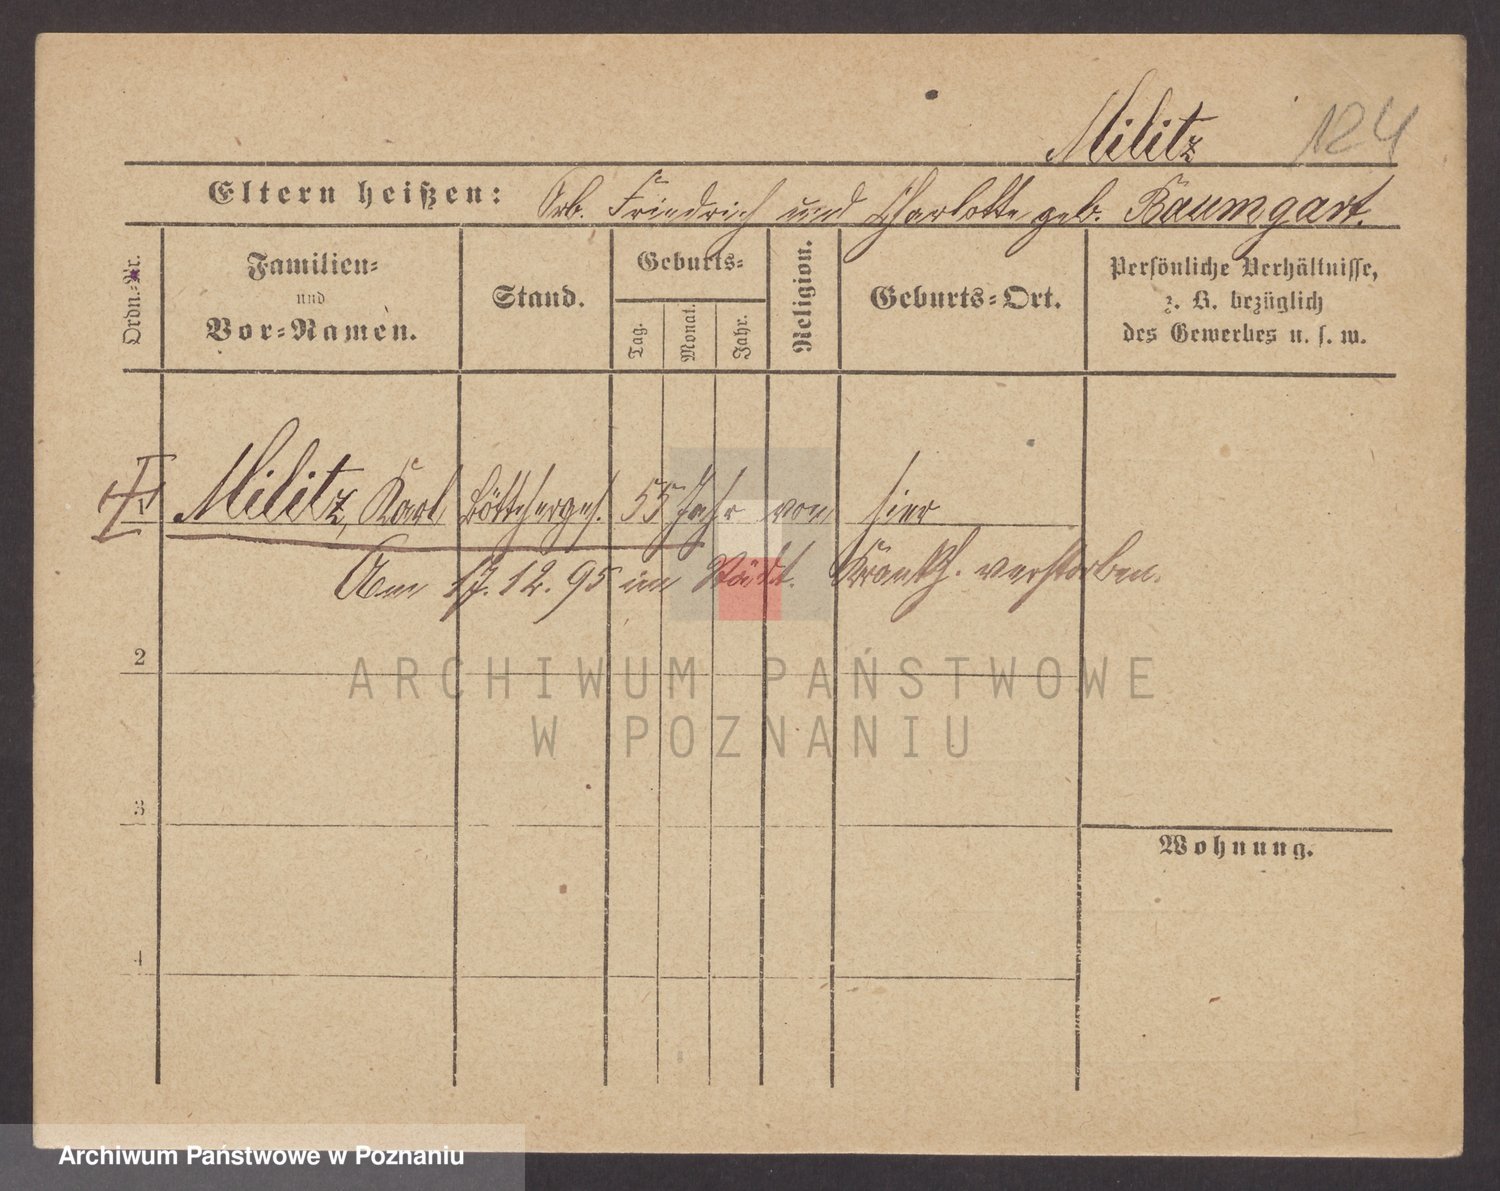 Militz 124
Eltern heißen: Arb. Friedrich und Charlotte geb. Baumgart.
Ordn.-Nr.
Familien-
und
Vor-Namen.
Stand.
Geburts-
Tag.
Monat.
Jahr.
Religion.
Geburts-Ort.
Persönliche Verhältnisse,
z. B. bezüglich
des Gewerbes u. s. w.
Militz, Karl Böttcherges. 55 Jahr von hier
Am 17.12.95 im Städt. Krankh. verstorben.
2
ARCHIWUM PAŃSTWOWE
W POZNANIU
3
Wohnung.
4
Archiwum Państwowe w Poznaniu